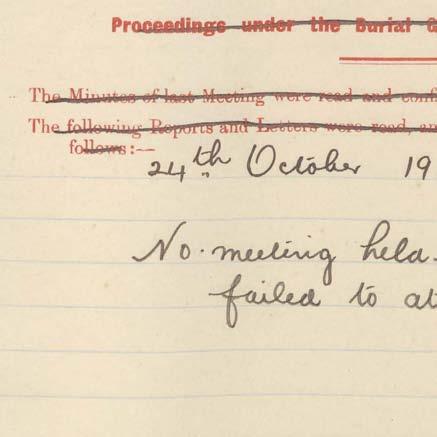 Proceedings under the Burial
The Minutes of last Meeting were read and conf
The following Reports and Letters were read, an
follows:—
24th October 19
No meeting held.
failed to at